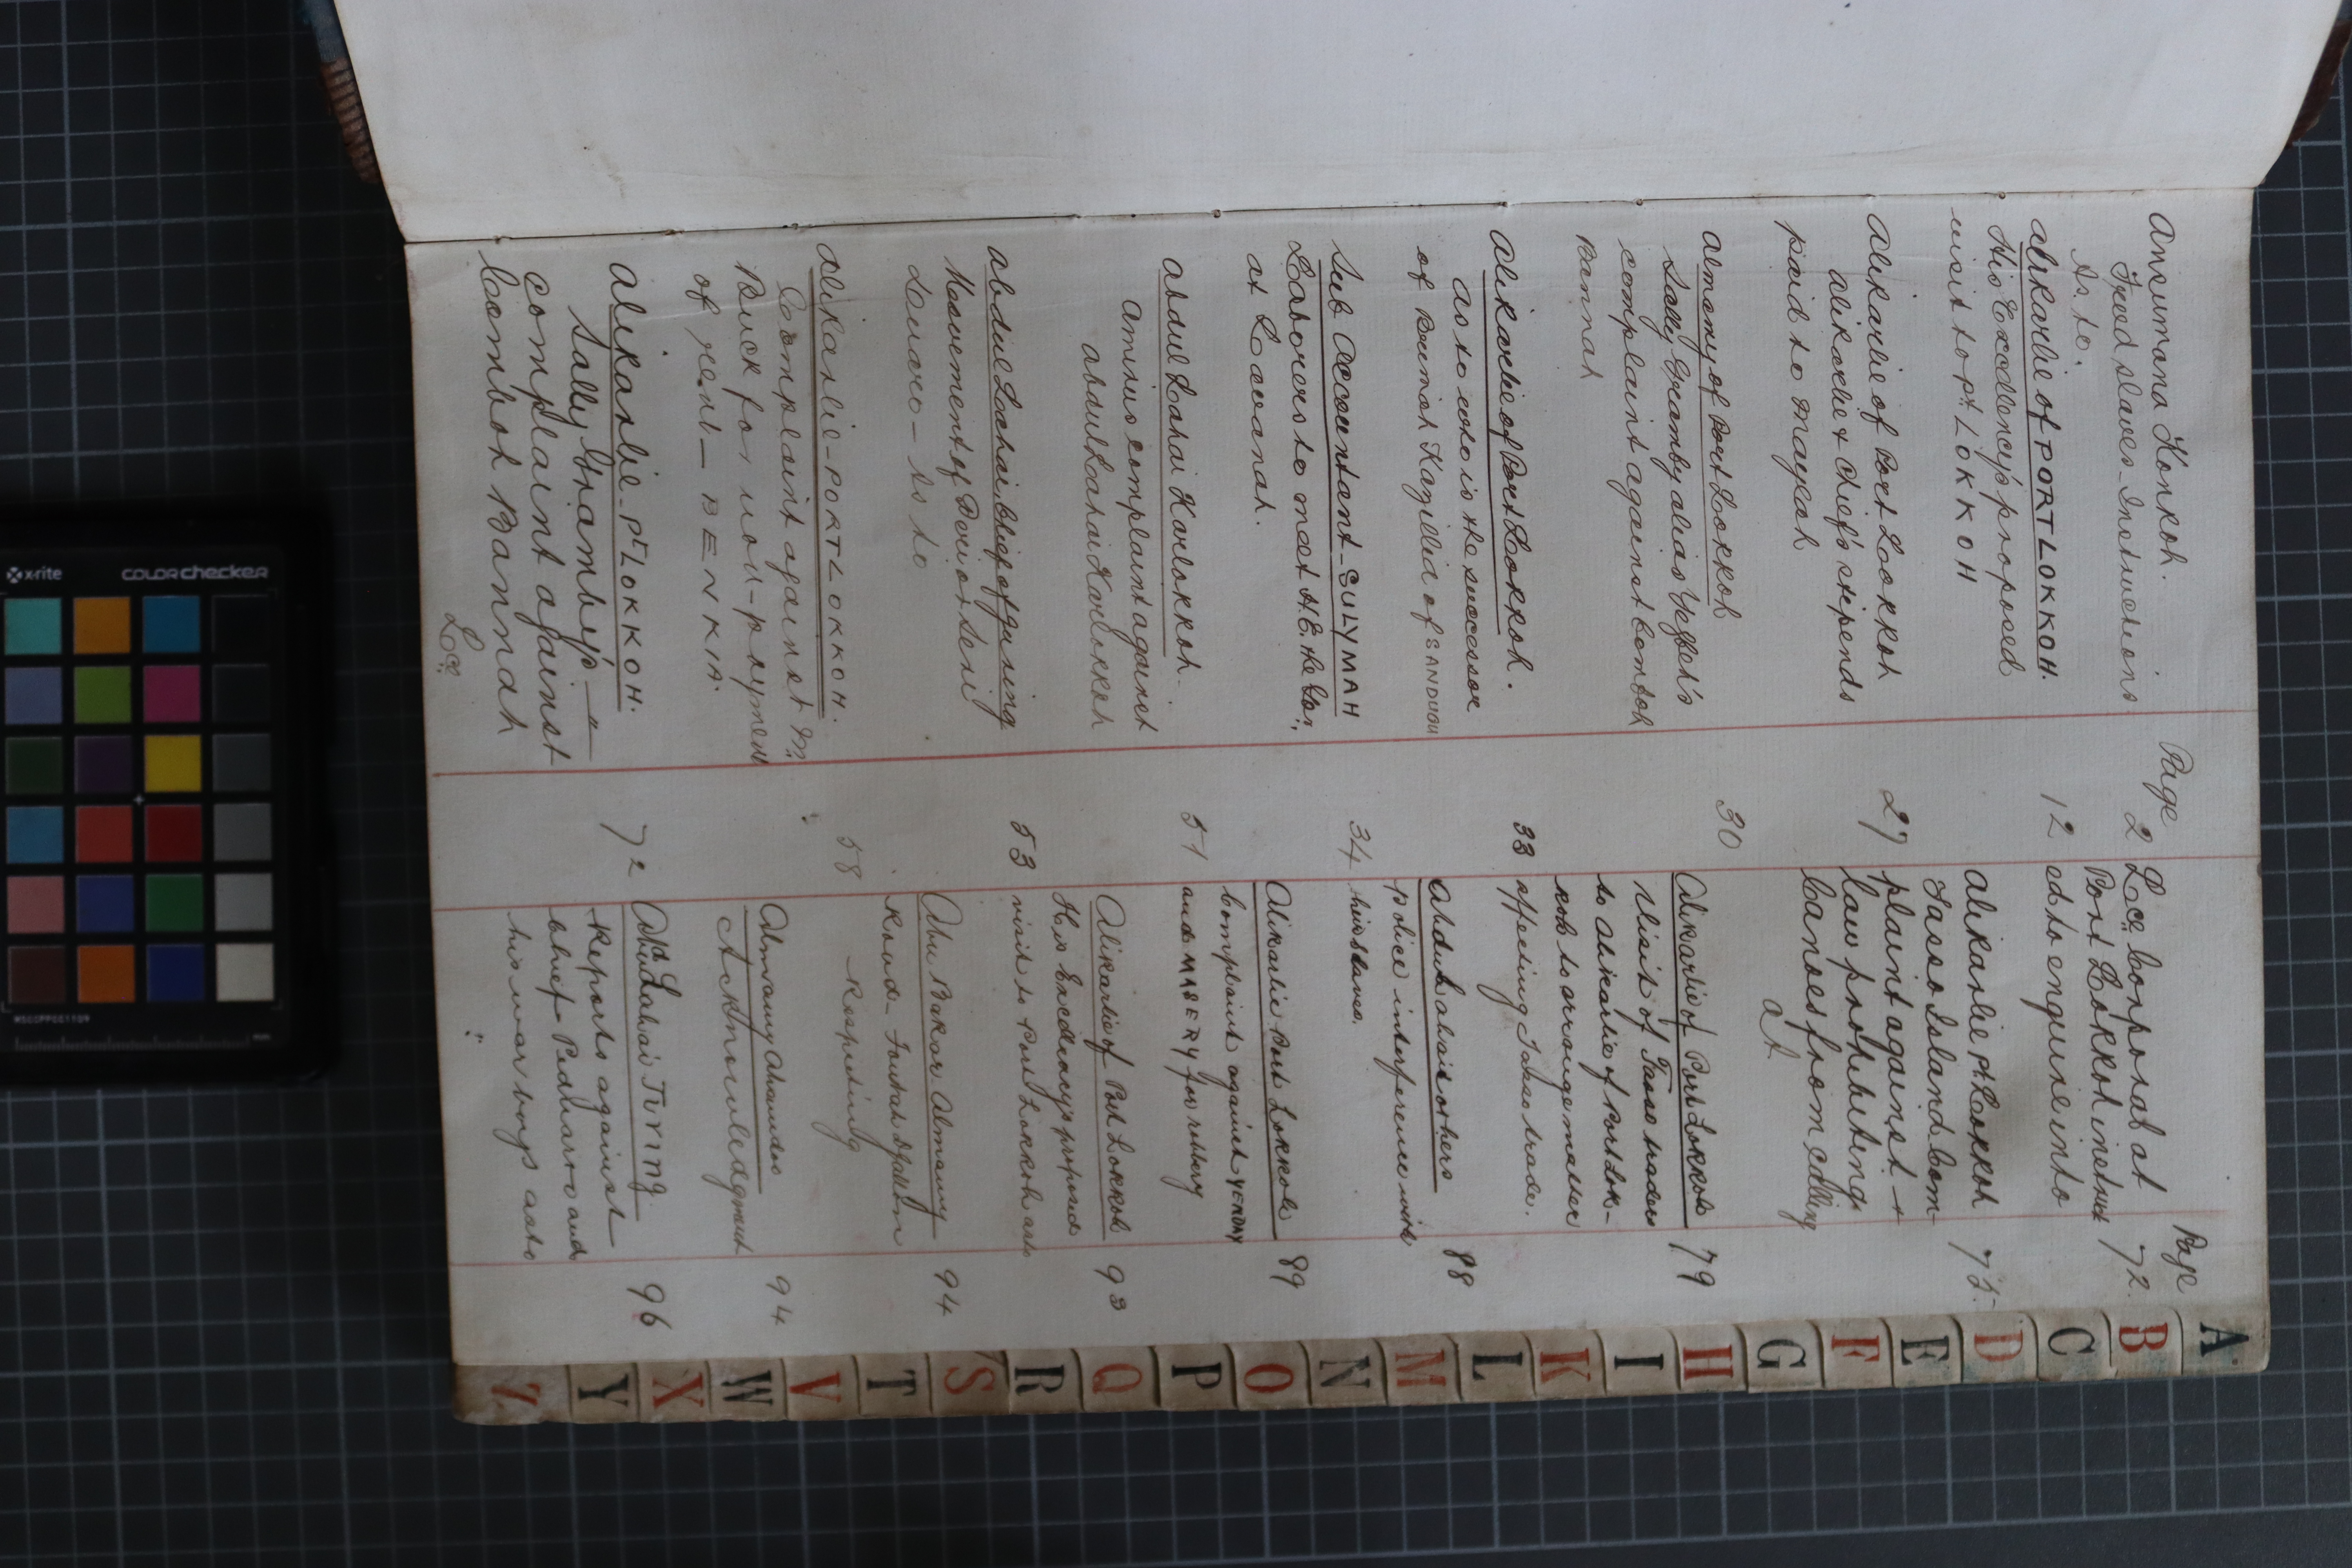 Page
Ansumana Konkoh. 2
Freed slaves - Instructions
As to.
Alikarlie of PORT LOKKOH. 12
His Excellency's proposed
visit to Pt. LOKKOH
Alikarlie of Port Lokkoh 27
Alikarlie & Chief's stipends
paid to Mayeah
Almamy of Port Lokkoh 30
Sally Gramby alias Yeffeh's
complaint against Comboh
Bannah
Alikarlie of Port Lokkoh. 33
as to who is the successor
of Beumah Kagillia of SANDUGU
Sub Accountant - SULYMAH 34
Laborers to meet H.E. the Gov.
at Lavanah.
Abdul Lahai Karlokkoh - 51
Aminu's complaint against
Abdul Lahai Karlokkoh
Abdul Lahai Chief of Jusing 53
Movement of
Suaro - As to
Alikarlie - PORT LOKKOH. 58
Complaint against Mr.
Buck for non-payment
of rent - BENKIA.
Alikarlie - Pt. LOKKOH. 72
Sally Gramby's -
complaint against
Comboh Bannah
Lce
Page
Lce Corporal at
Port Lokkoh instruct 72.
ed to enquire into
Alikarlie Pt Lokkoh 75.
Tasso Island Com-
plaint against +
law prohibiting
Canoes from calling
at
Alikarlie of Port Lokkoh 79
Visit of Tasso traders
to Alikarlie of Port Lok-
koh to arrange matter
affecting Tasso trade.
Abdul Lahai & others 88
police interference with
their slaves.
Alikarlie Port Lokkoh 89
Complaint against YENDAY
and MABERY for robbery
Alikarlie of Port Lokkoh 93
His Excellency's proposed
visit to Port Lokkoh as to
Abu Bakar Almamy 94
Road - Foutah Djallon
Respecting
Almamy Ahamdoo 94
Acknowledgment
Abdl Lahai Jiving 96
Reports against
Chief and
his war boys as to
x-rite
COLORCHECKER
MSCCPPCC1109
mm
A
B
C
D
E
F
G
H
I
K
L
M
N
O
P
Q
R
S
T
V
W
X
Y
Z